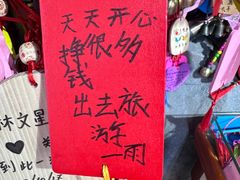 天天开心
挣很多
钱
出去旅
游
一雨
林文星
到此一